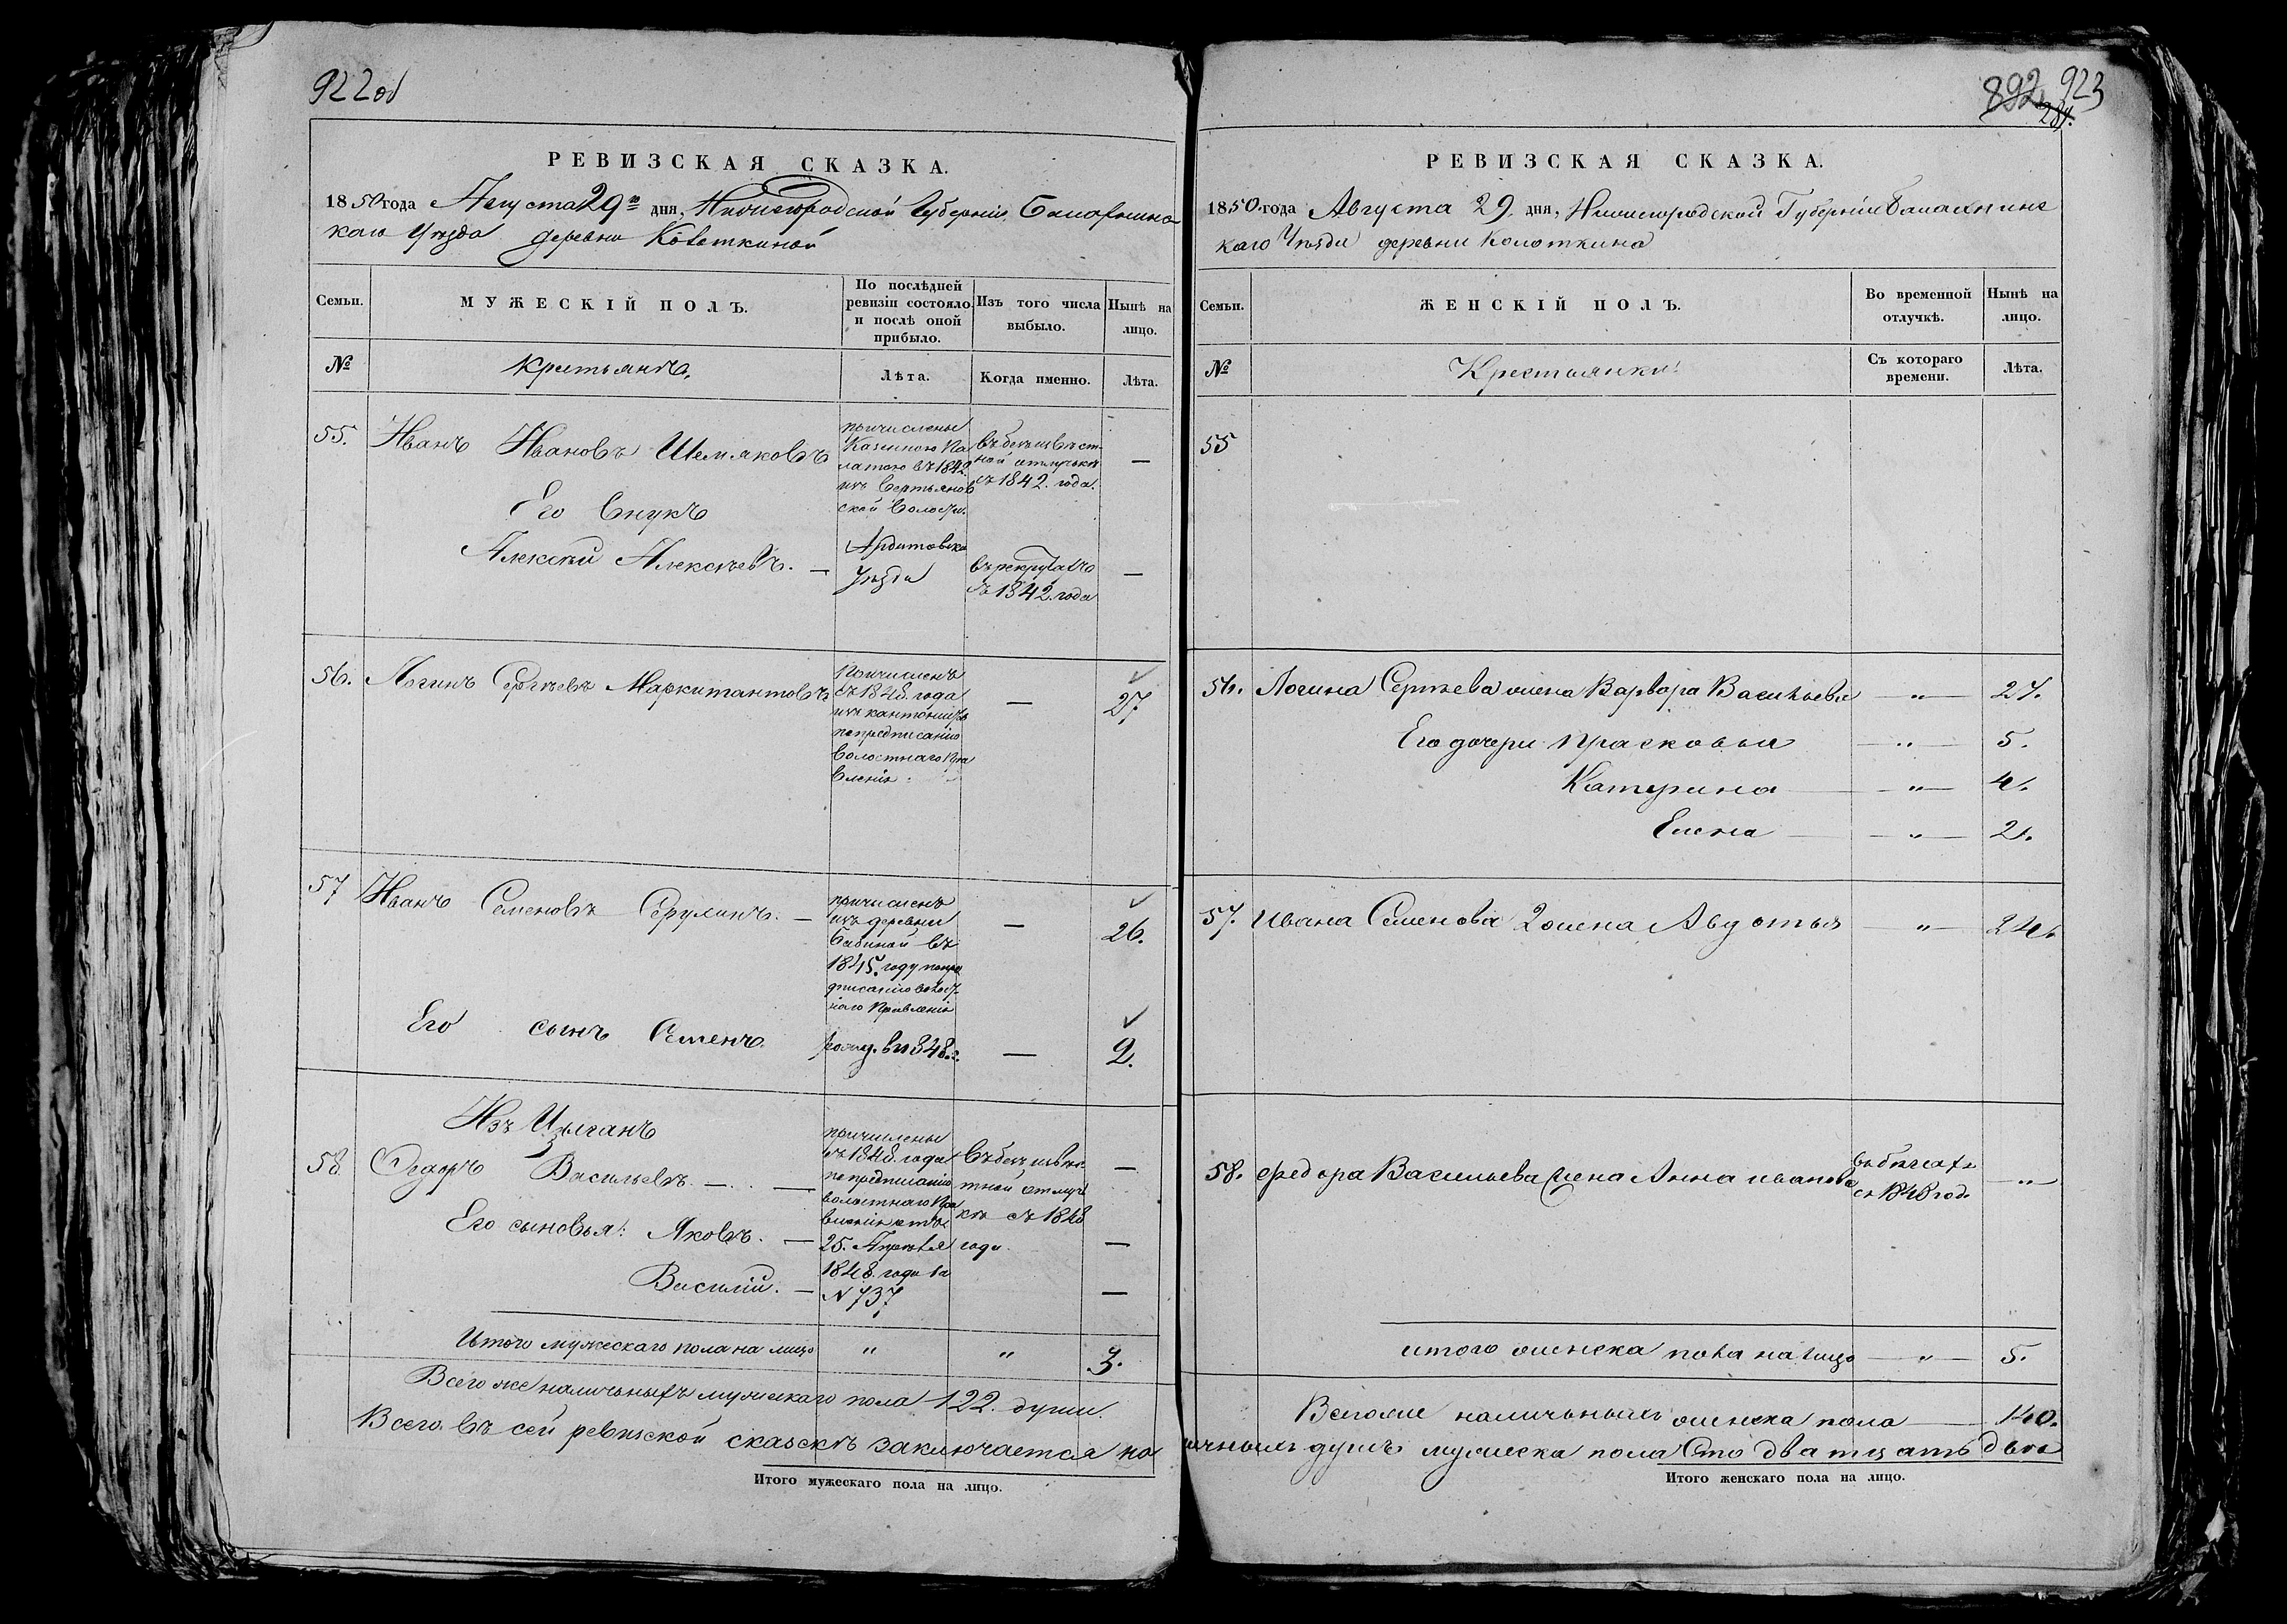 922об
РЕВИЗСКАЯ СКАЗКА.
1850 года Августа 29го дня, Нижегородской Губерніи, Балахнинс
каго Уѣзда деревни Колоткиной
Семьи.
МУЖЕСКІЙ ПОЛЪ.
По послѣдней
ревизіи состояло
и послѣ оной
прибыло.
Изъ того числа
выбыло.
Нынѣ на
лицо.
№
Крестьянъ.
Лѣта.
Когда именно.
Лѣта.
55. Иванъ Ивановъ Шемяковъ
причислены
Казенною Па
латою въ 1842.
изъ Сертьянов
ской Волости.
въ безъизвѣст
ной отлучкѣ
съ 1842. года.
—
Его Внукъ
Алексѣй Алексѣевъ. —
Ардатовска
Уѣзда
въ рекрутахъ
съ 1842. года
—
56. Логинъ Сергѣевъ Маркитантовъ
Причисленъ
съ 1848. года
изъ кантонистъ
по предписанію
Волостнаго Пра
вленія
—
27
57 Иванъ Семеновъ Серулинъ. —
причисленъ
изъ деревни
Бабиной въ
1845. году по пре
дписанію волост
наго Правленія
—
26.
Его сынъ Семенъ.
рожд. в 1848. г.
—
2.
Изъ Цыганъ
58 Федоръ Васильевъ. — . —
причислены
съ 1848. года
по предписанію
волостнаго Пра
вленія отъ
25. Апрѣля
1848. года за
N 737
Въ безъизвѣс
тной отлуч
кѣ съ 1848
года.
—
Его сыновья: Яковъ. —
—
Василій. —
—
Итого мужескаго пола на лицо " " 3.
Всего же наличныхъ мужескаго пола 122. души.
Всего въ сей ревизской сказскѣ заключается на
Итого мужескаго пола на лицо.
892 923
284.
РЕВИЗСКАЯ СКАЗКА.
1850. года Августа 29. дня, Нижегородской Губерніи Балахнинс
каго Уѣзда деревни Колоткина
Семьи.
ЖЕНСКІЙ ПОЛЪ.
Во временной
отлучкѣ.
Нынѣ на
лицо.
№
Крестьянки:
Съ котораго
времени.
Лѣта.
55
56. Логина Сергѣева жена Варвара Васильева — " — 27.
Его дочери Прасковья — " — 5.
Катерина — " — 4.
Елена — " — 2.
57. Ивана Семенова 2 жена Авдотья — " — 24.
58. Федора Васильева жена Анна иванова
въ бѣгахъ
съ 1848 год.
— " —
итого женска пола на лицо — " — 5.
Всего же наличныхъ женска пола — 140.
личныхъ душъ мужеска пола Сто двадцать две
Итого женскаго пола на лицо.